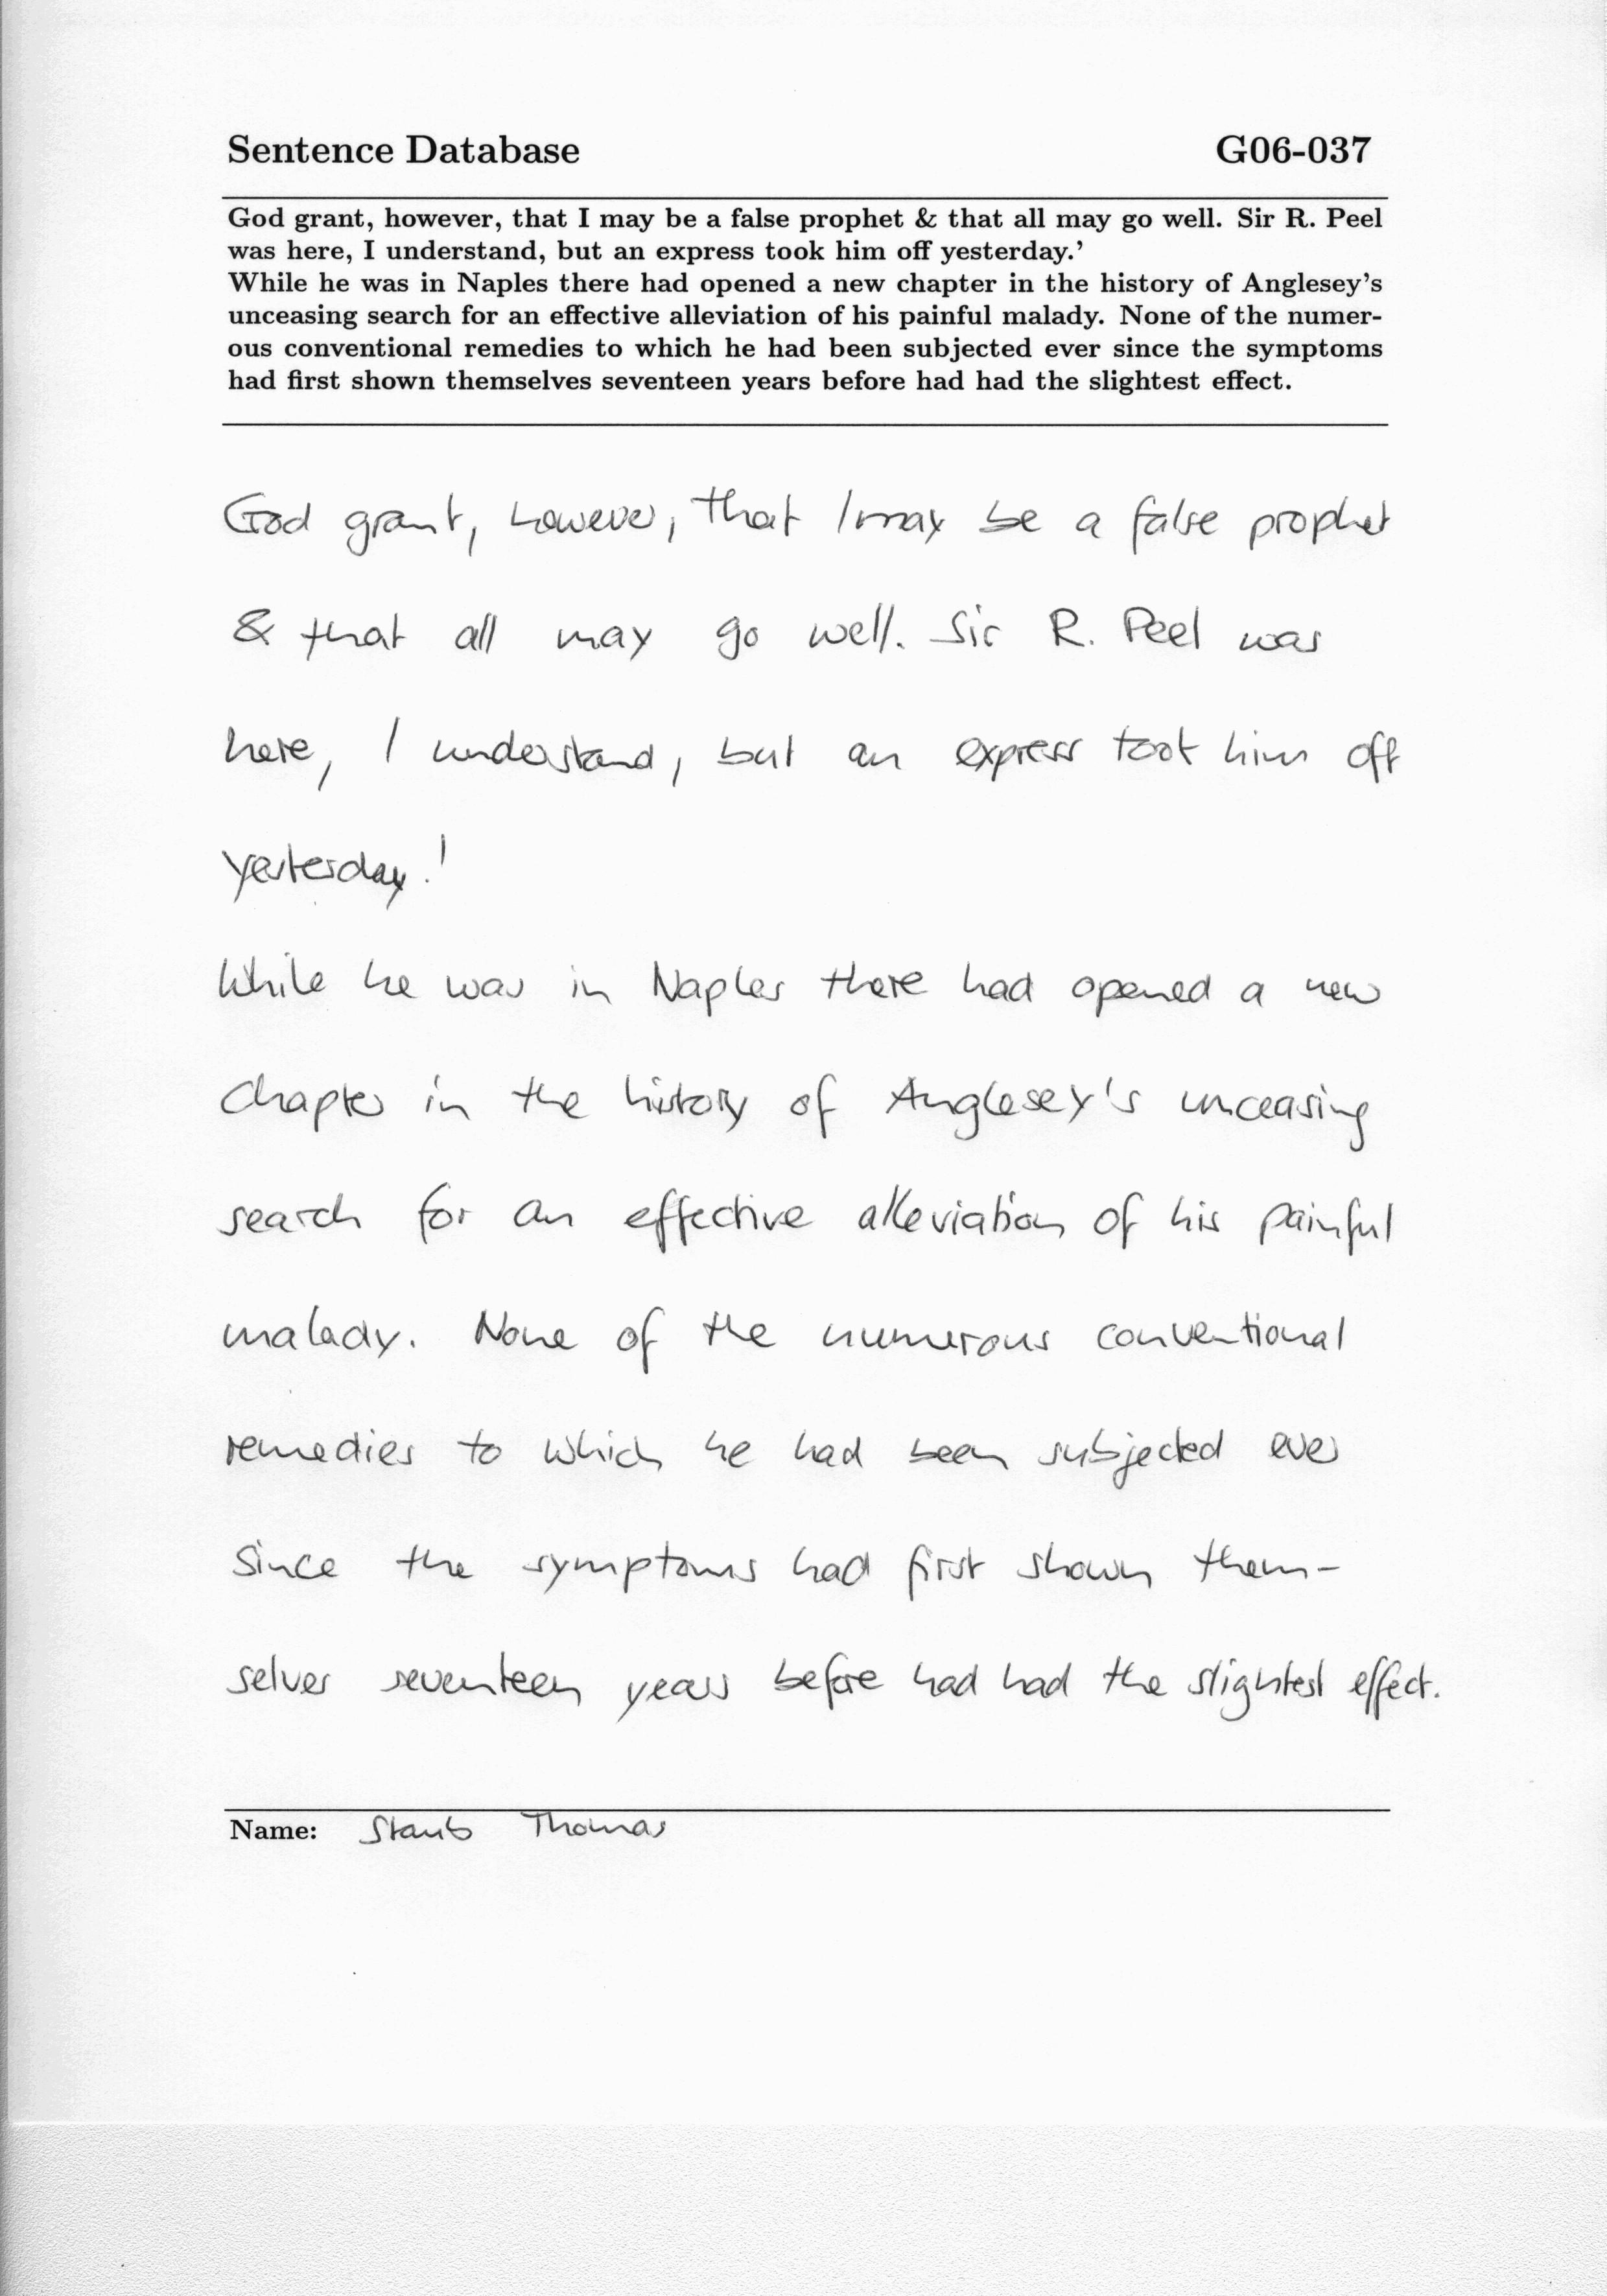 Sentence Database G06-037
God grant, however, that I may be a false prophet & that all may go well. Sir R. Peel
was here, I understand, but an express took him off yesterday.’
While he was in Naples there had opened a new chapter in the history of Anglesey’s
unceasing search for an effective alleviation of his painful malady. None of the numer-
ous conventional remedies to which he had been subjected ever since the symptoms
had first shown themselves seventeen years before had had the slightest effect.
God grant, however, that I may be a false prophet
& that all may go well. Sir R. Peel was
here, I understand, but an express took him off
yesterday.'
While he was in Naples there had opened a new
chapter in the history of Anglesey's unceasing
search for an effective alleviation of his painful
malady. None of the numerous conventional
remedies to which he had been subjected ever
since the symptoms had first shown them-
selves seventeen years before had had the slightest effect.
Name: Staub Thomas